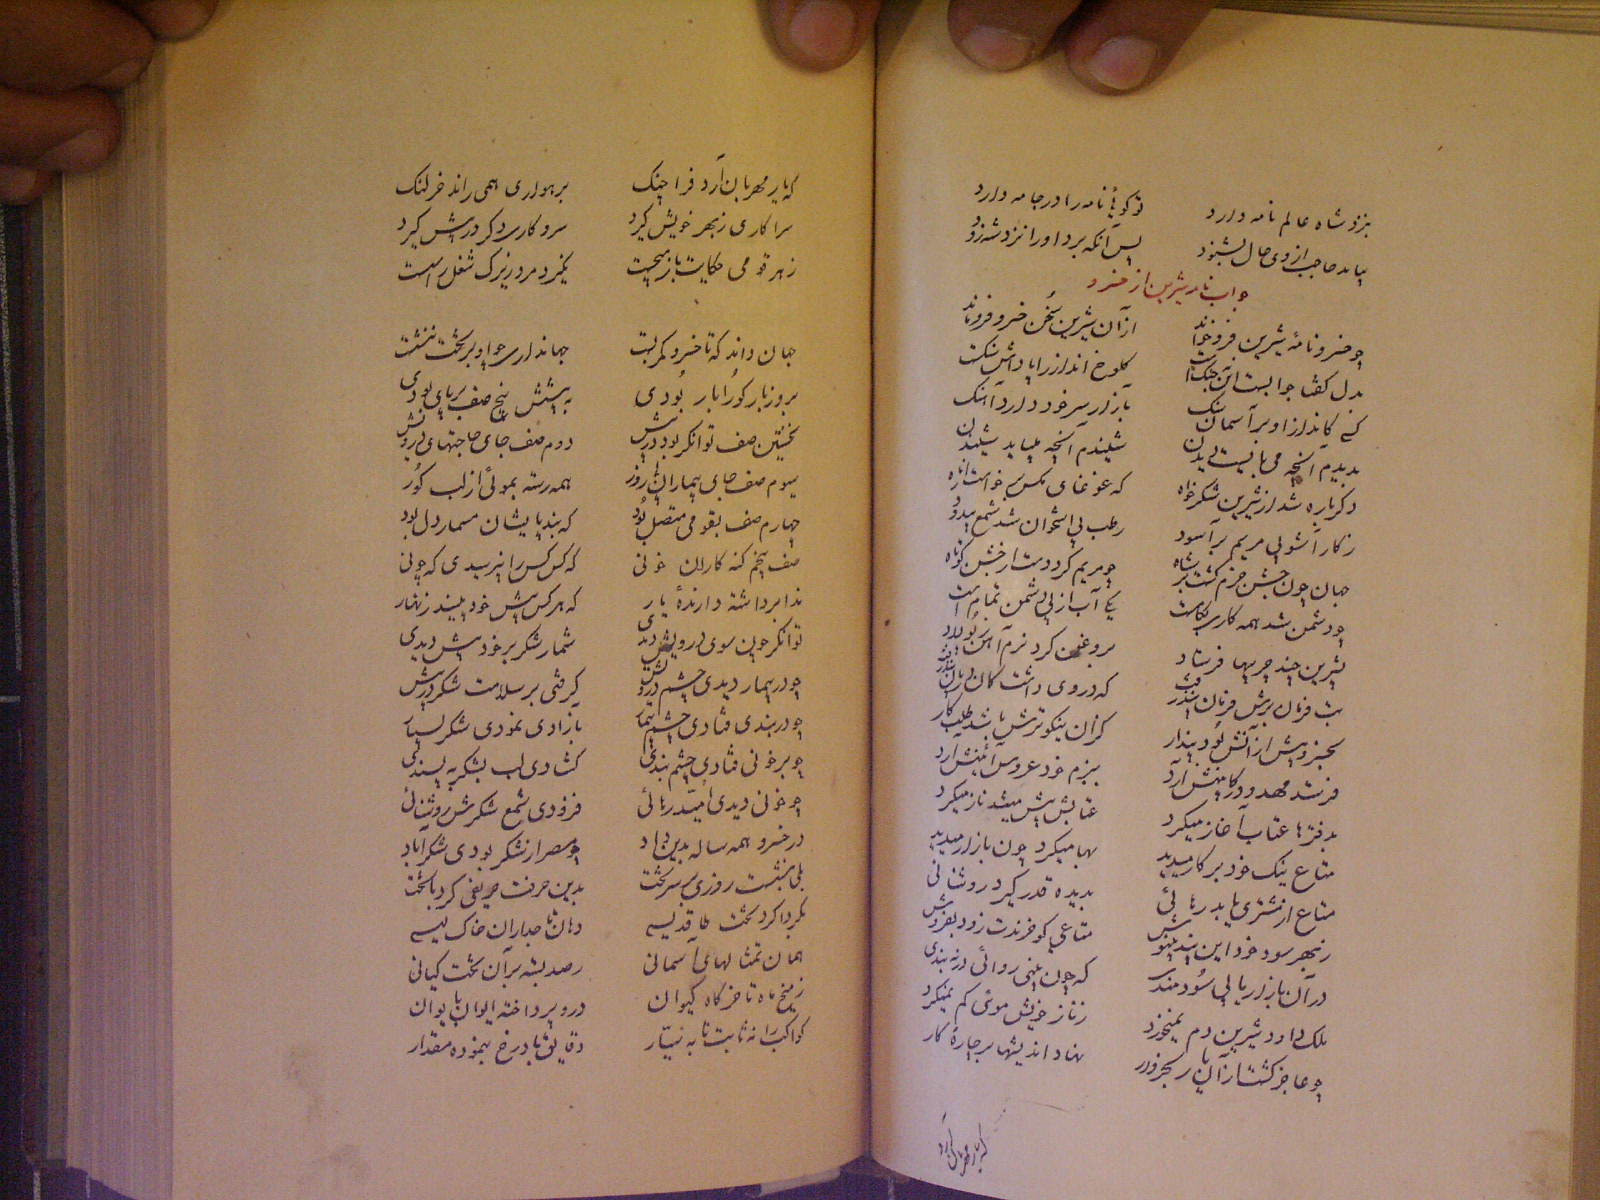 بنزد شاه عالم نامه دارد تو گوئی نامه را در جامه دارد
بیامد حاجب از وی حال بشنود پس آنگه برد او را نزد شه زود
جواب نامه شیرین از خسرو
چو خسرو نامهٔ شیرین فرو خواند از آن شیرین سخن خسرو فرو ماند
بدل گفتا جوابست این نه جنگ است کلوخ انداز را پاداش سنگست
کاندازد او بر آسمان سنگ بآزار سر خود دارد آهنگ
بدیدم آنچه می بایست دیدن شنیدم آنچه میباید شنیدن
دگرباره شد از شیرین شکرخواه که غوغای مگس برخاست از راه
ز کار آشوبی مریم بر آسود رطب بی استخوان شد شمع بیدود
جهان چون جشن خرم گشت بر شاه چو مریم کرد دست از جشن کوتاه
چو دشمن شد همه کاری بکامست یکی آب از پی دشمن تمامست
بشیرین چند چربیها فرستاد بروغن کرد نرم آهن ز پولاد
بت فرمان برش فرمان پذیرفت که در وی داشت
از آتش بود کزان نیکوترش باشد طلبکار
فرستد مهد و در کابینش آرد ببزم خود عروس آئینش آرد
بدفترها عتاب آغاز میکرد عتابش پیش میشد ناز میکرد
متاع نیک خود بر کار میدید بها میکرد چون بازار میدید
متاع از مشتری یابد رهائی بدیده قدر گیرد روشنائی
ز بهر سود خود این پند بنیوش متاعی کو خرندت زود بفروش
در آن بازار یابی سودمندی که چون بینی روائی در نه بندی
ملک دم داد و شیرین دم نمیخورد ز ناز خویش موئی کم نمیکرد
چو عاجز گشت از آن یار جگرخوار نهاد اندیشها بر چارهٔ کار
که یار مهربان آرد
که یار مهربان آرد فرا چنگ برهواری همی راند خر لنگ
سرا کاری ز بهر خویش گیرد سر و کاری دگر در پیش گیرد
ز هر قومی حکایت باز میجست نگیرد مرد زیرک شغل را سست
جهان داند که تا خسرو کمر بست جهانداری چو او بر تخت ننشست
بروز بار کو را بار بودی به پیشش پنج صف بر پای بودی
نخستین صف توانگر بود در پیش دوم صف جای حاجتهای درویش
سیوم صف جای بیماران بی زور همه رسته بموئی از لب گور
چهارم صف بقومی متصل بود که بند پایشان مسمار دل بود
صف پنجم گنه کاران خونی که کس کس را نپرسیدی که چونی
ندا برداشته دارندهٔ بار که هر کس پیش خود بینند زنهار
توانگر چون سوی درویش دیدی شمار شکر بر خود بیش دیدی
چو در بیمار دیدی چشم درویش گرفتی بر سلامت شکر در پیش
چو در بندی فتادی چشم بیمار بازادی نمودی شکر بسیار
چو بر خونی فتادی چشم بندی گشادی لب بشکر به پسندی
چو خونی دیدی امید رهائی فزودی شمع شکرش روشنائی
در خسرو همه ساله بدین داد چو مصر از شکر بودی شکر آباد
بلی بنشست روزی بر سر تخت بدین حرفت حریفی کرد با بخت
بگرداگرد تخت طاقدیسی دهان تاجداران خاک لیسی
همان تمثالهای آسمانی رصد بسته بر آن تخت کیانی
ز میخ ماه تا خرگاه کیوان درو پرداخته ایوان بایوان
کواکب را ز ثابت تا به سیار دقایق با درج پیموده مقدار